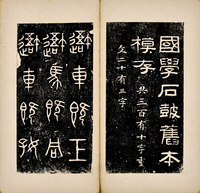 國學石鼓舊本
模存
共三百有十字重
文二十有三字
車既工
馬既同
車既好